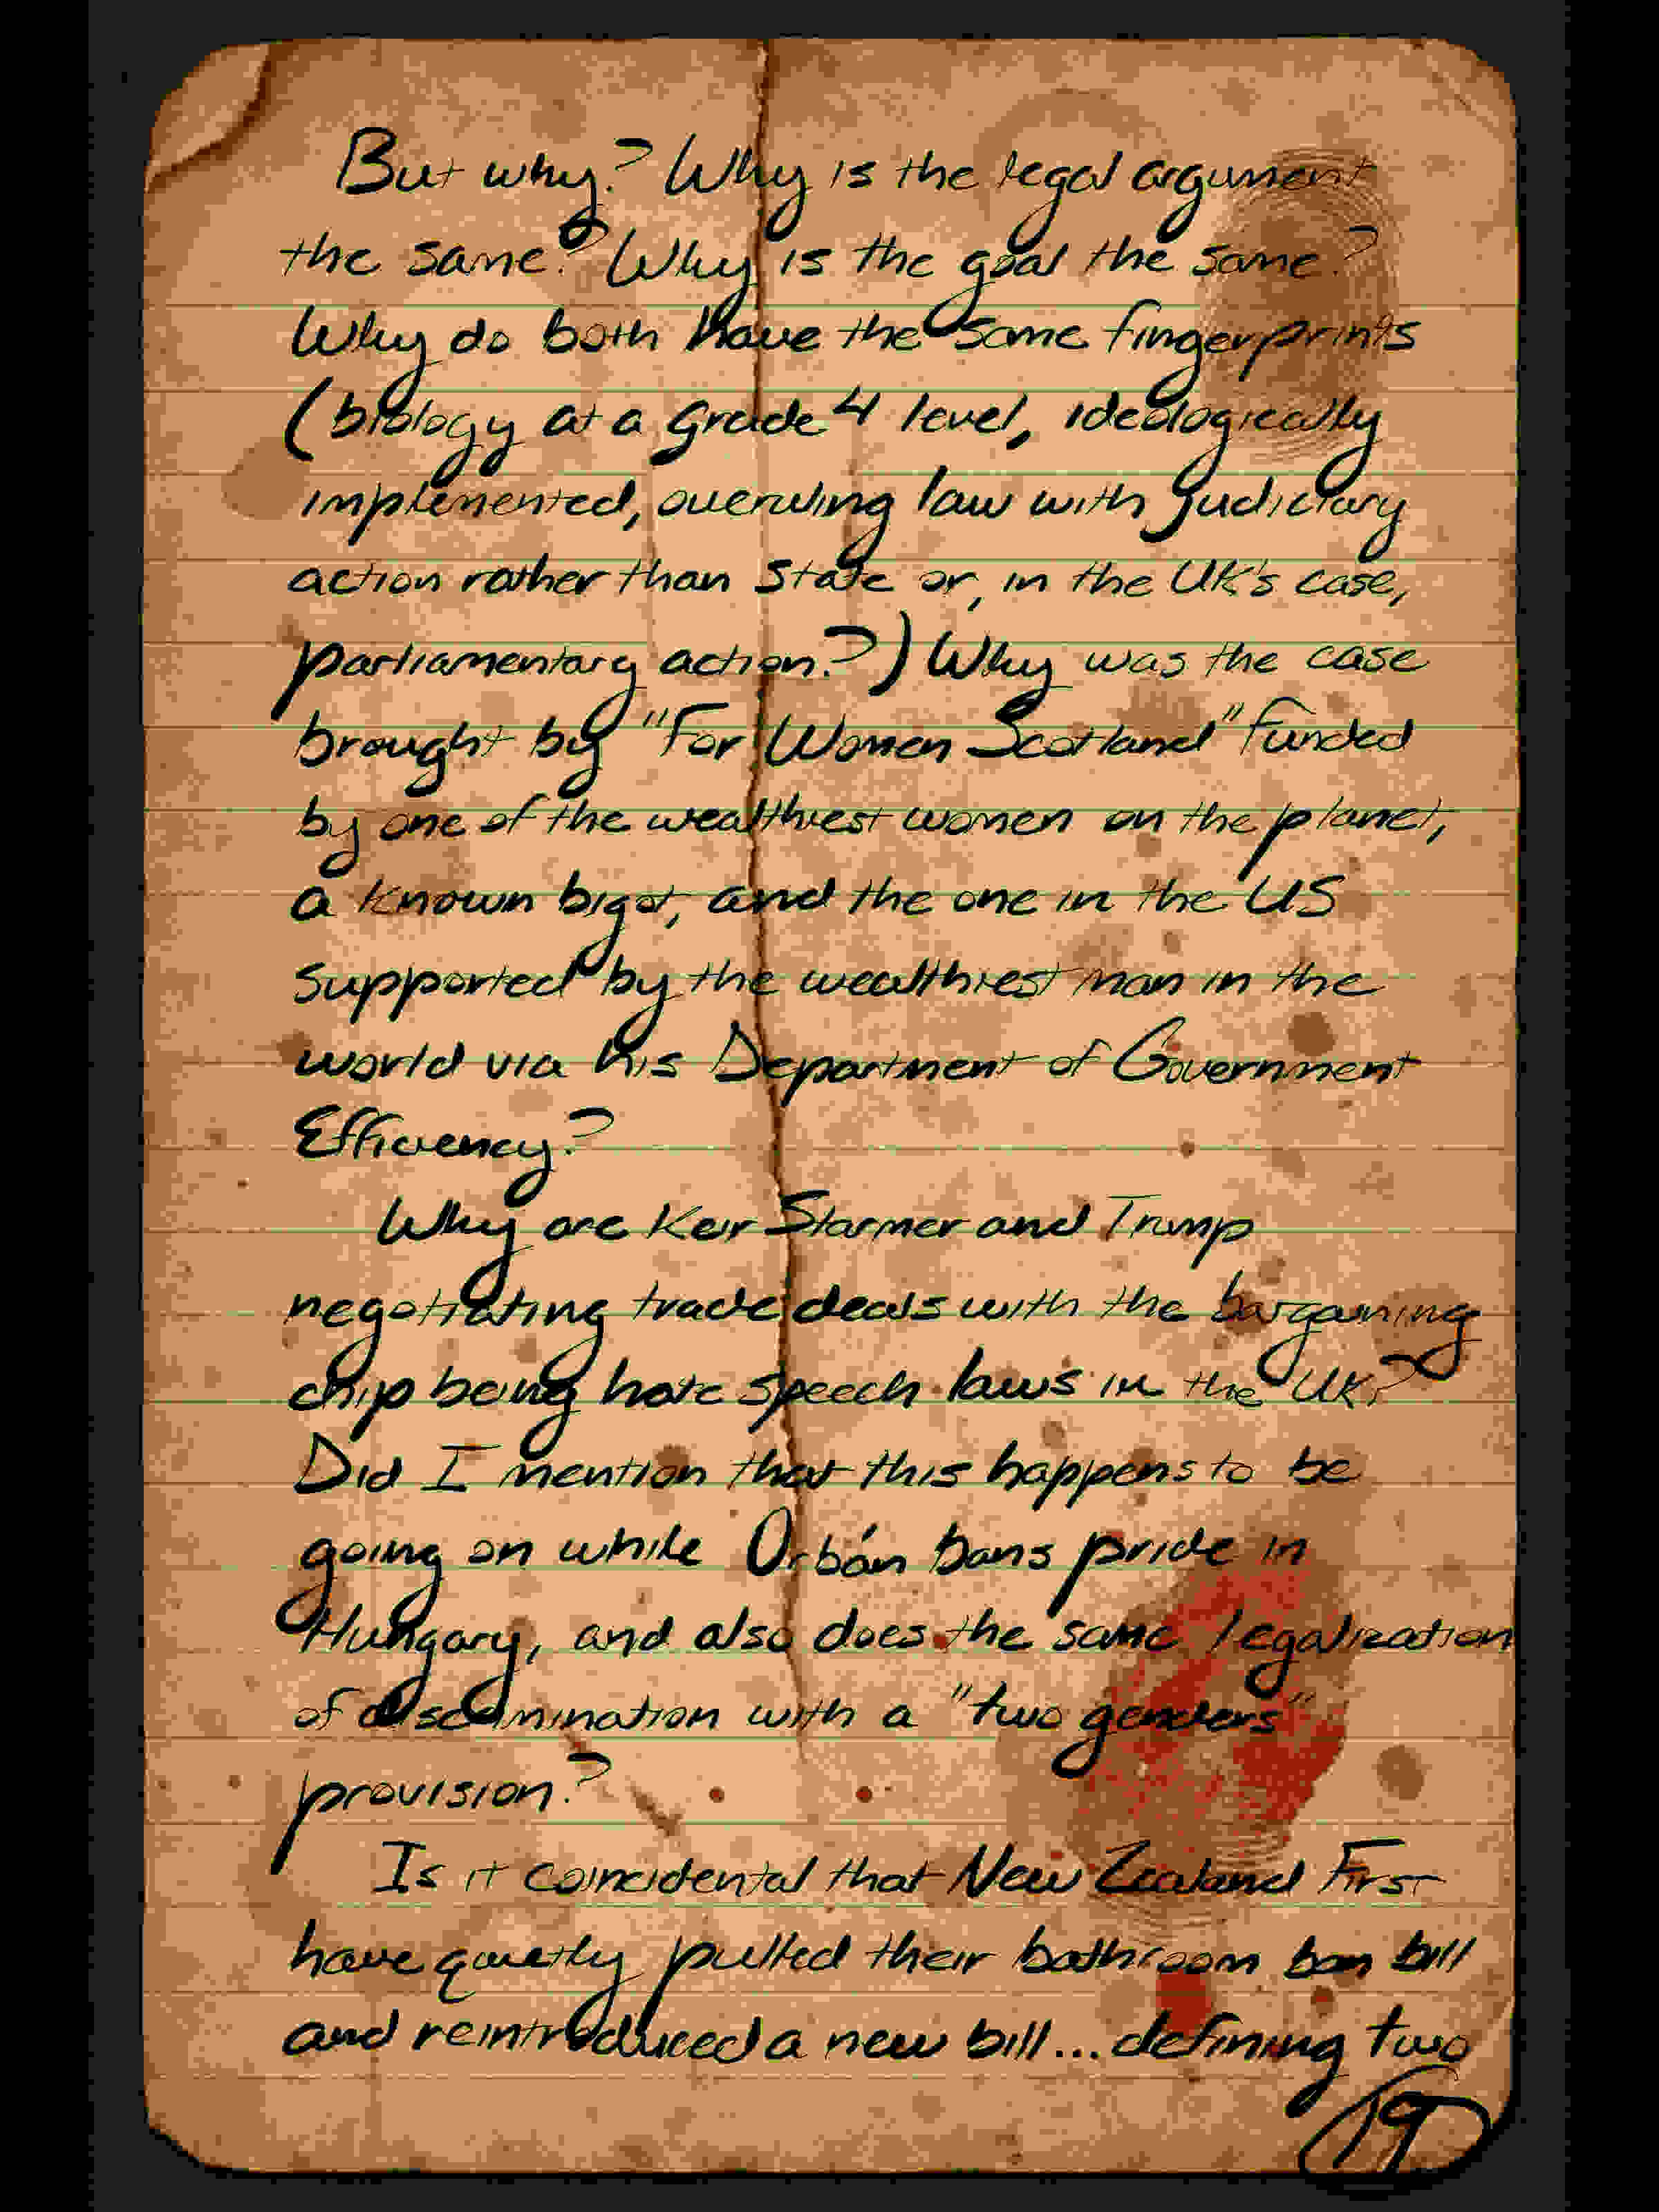 But why? Why is the legal argument
the same? Why is the goal the same?
Why do both have the same fingerprints
(biology at a grade 4 level, ideologically
implemented, overruling law with judiciary
action rather than state or, in the UK's case,
parliamentary action?) Why was the case
brought by "For Women Scotland" funded
by one of the wealthiest women on the planet,
a known bigot, and the one in the US
supported by the wealthiest man in the
world via his Department of Government
Efficiency?
Why are Keir Starmer and Trump
negotiating trade deals with the bargaining
chip being hate speech laws in the UK?
Did I mention that this happens to be
going on while Orbán bans pride in
Hungary, and also does the same legalization
of discrimination with a "two genders"
provision?
Is it coincidental that New Zealand First
have quietly pulled their bathroom ban bill
and reintroduced a new bill... defining two
19